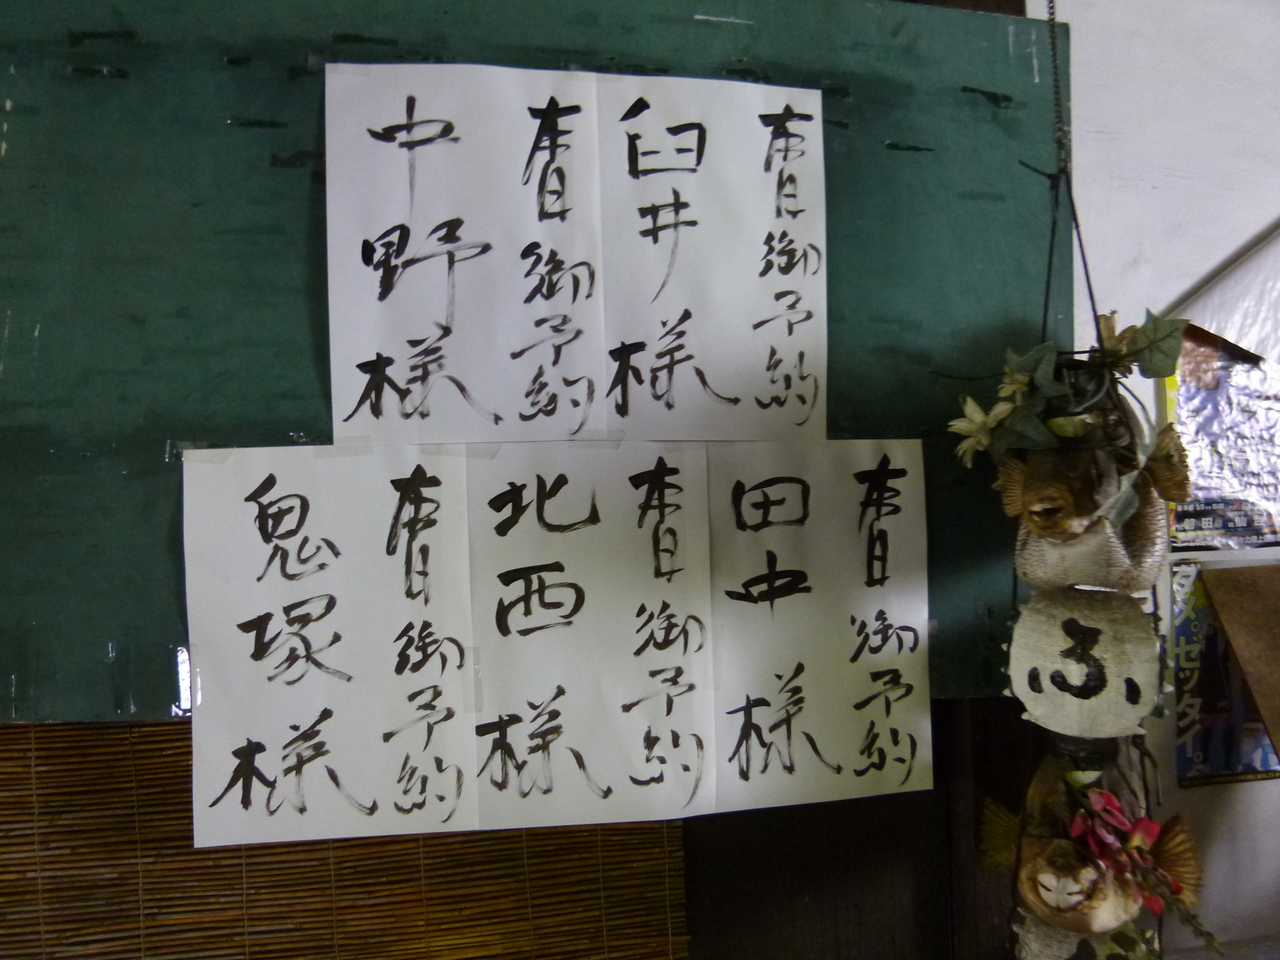 本日御予約
臼井様
本日御予約
中野様
本日御予約
田中様
本日御予約
北西様
本日御予約
鬼塚様
ふ
ダメ。ゼッタイ。